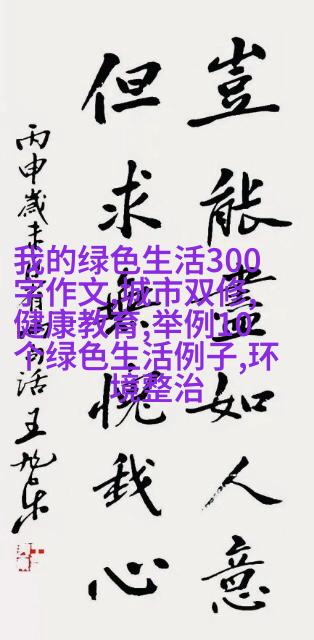 豈能盡如人意
但求無愧我心
丙申歲末 活 王旭东
我的绿色生活300
字作文,城市双修,
健康教育,举例10
个绿色生活例子,环
境整治